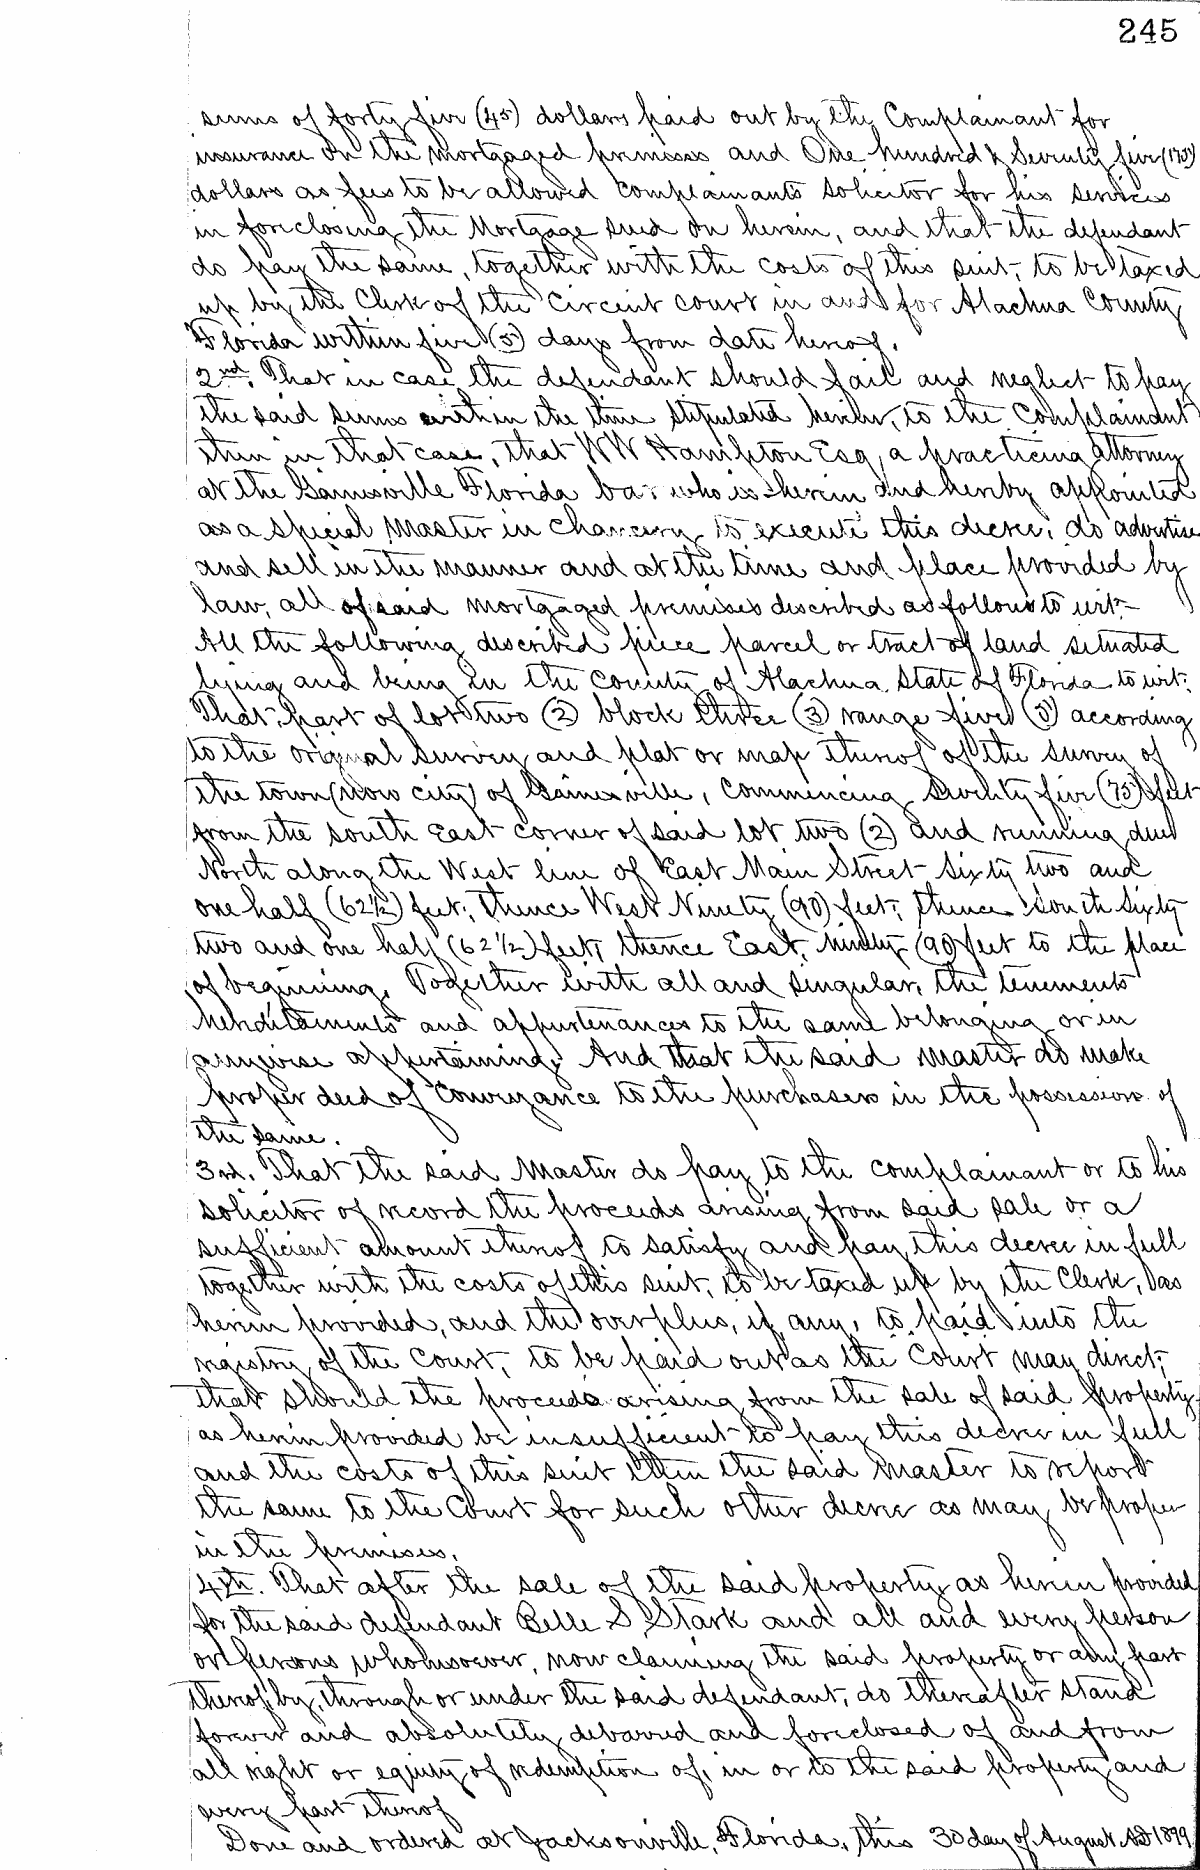 245
sums of forty five (45) dollars paid out by the Complainant for
insurance on the mortgaged premises and One hundred & Seventy five (175)
dollars as fees to be allowed complainants solicitor for his services
in foreclosing the Mortgage sued on herein, and that the defendant
do pay the same, together with the costs of this suit, to be taxed
up by the Clerk of the Circuit court in and for Alachua County
Florida within five (5) days from date hereof.
2nd. That in case the defendant should fail and neglect to pay
the said sums within the time stipulated herein, to the Complainant
then in that case, that W W Hampton Esq, a practicing attorney
at the Gainesville Florida bar who is herein and hereby appointed
as a special Master in Chancery to execute this decree, do advertise
and sell in the manner and at the time and place provided by
law, all of said mortgaged premises described as follows to wit-
All the following described piece parcel or tract of land situated
lying and being in the County of Alachua State of Florida to wit:
That part of lot two (2) block three (3) range five (5) according
to the original survey and plat or map thereof of the survey of
the town (now city) of Gainesville, Commencing Seventy five (75) feet
from the south East corner of said lot two (2) and running due
North along the West line of East Main Street Sixty two and
one half (62½) feet; thence West Ninety (90) feet; thence South Sixty
two and one half (62½) feet, thence East, ninety (90) feet to the place
of beginning. Together with all and singular, the tenements
hereditaments and appurtenances to the same belonging or in
anywise appertaining. And that the said master do make
proper deed of conveyance to the purchasers in the possession of
the same.
3rd. That the said Master do pay to the complainant or to his
solicitor of record the proceeds arising from said sale or a
sufficient amount thereof to satisfy and pay this decree in full
together with the costs of this suit, to be taxed up by the Clerk, as
herein provided, and the overplus, if any, to paid into the
registry of the Court, to be paid out as the Court may direct;
that should the proceeds arising from the sale of said property
as herein provided be insufficient to pay this decree in full
and the costs of this suit then the said master to report
the same to the Court for such other decree as may be proper
in the premises.
4th. That after the sale of the said property as herein provided
for the said defendant Belle S Stark and all and every person
or persons whomsoever, now claiming the said property or any part
thereof by, through or under the said defendant, do thereafter stand
forever and absolutely debarred and foreclosed of and from
all right or equity of redemption of, in or to the said property and
every part thereof
Done and ordered at Jacksonville, Florida, this 30 day of August AD 1899